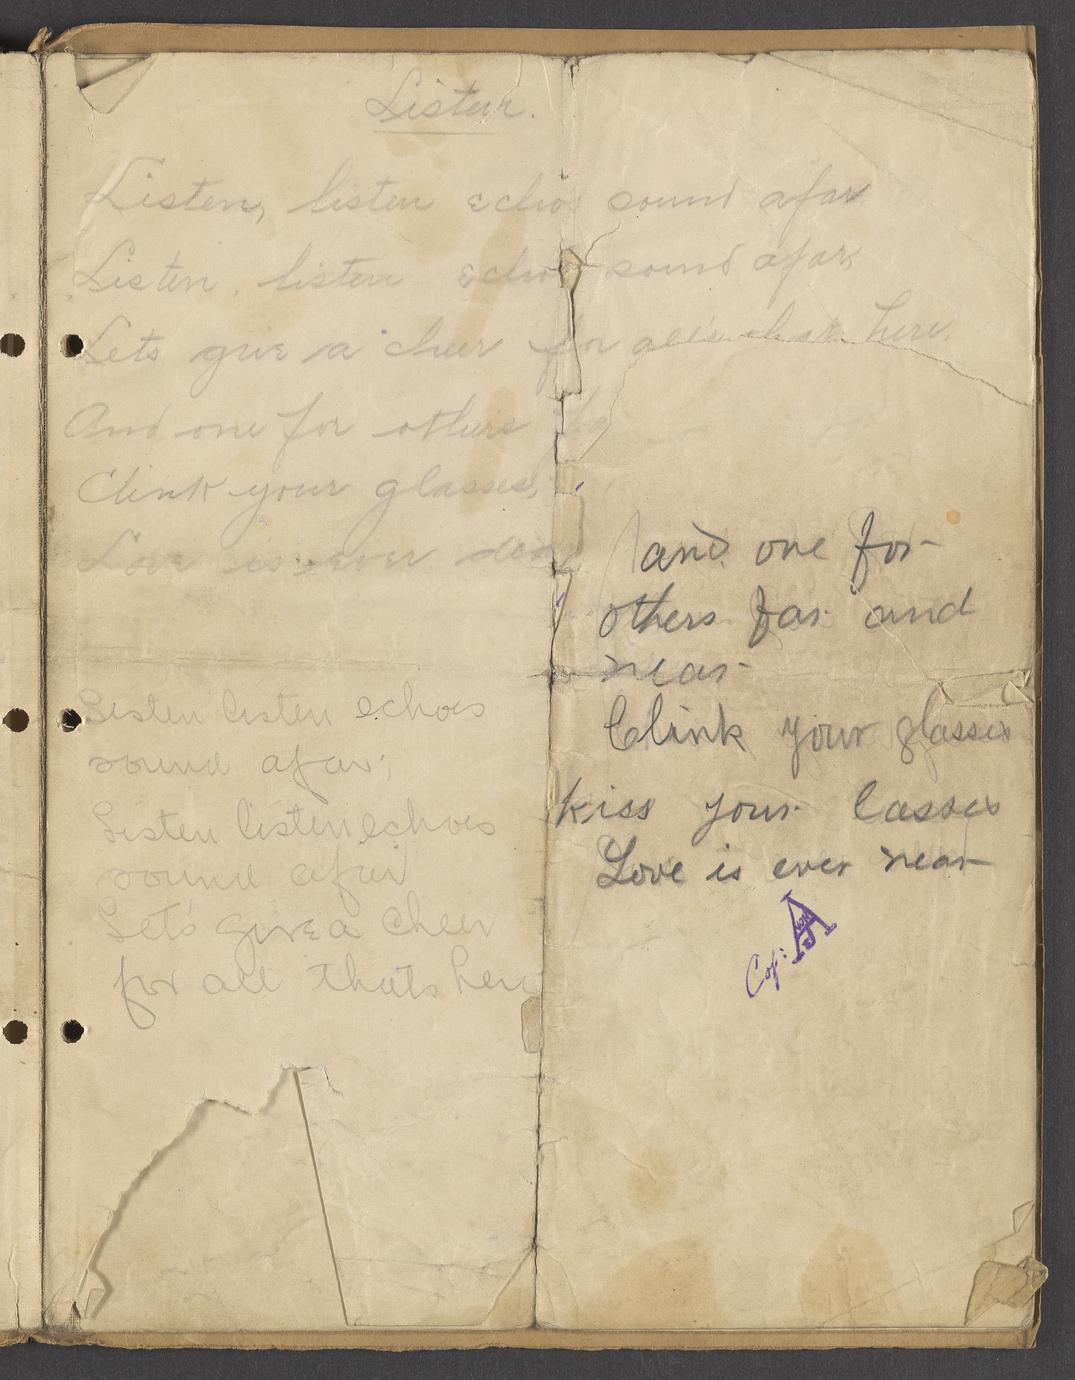 Listen.
Listen, listen echos sound afar.
Listen, listen echos sound afar,
Lets give a cheer for all that's here.
And one for others
Clink your glasses,
Love is ever dear
Listen listen echoes
sound afar;
Listen listen echoes
sound afar
Let's give a cheer
for all thats here
and one for
others far and
near
Clink your glasses
kiss your lasses
Love is ever near
Cop: